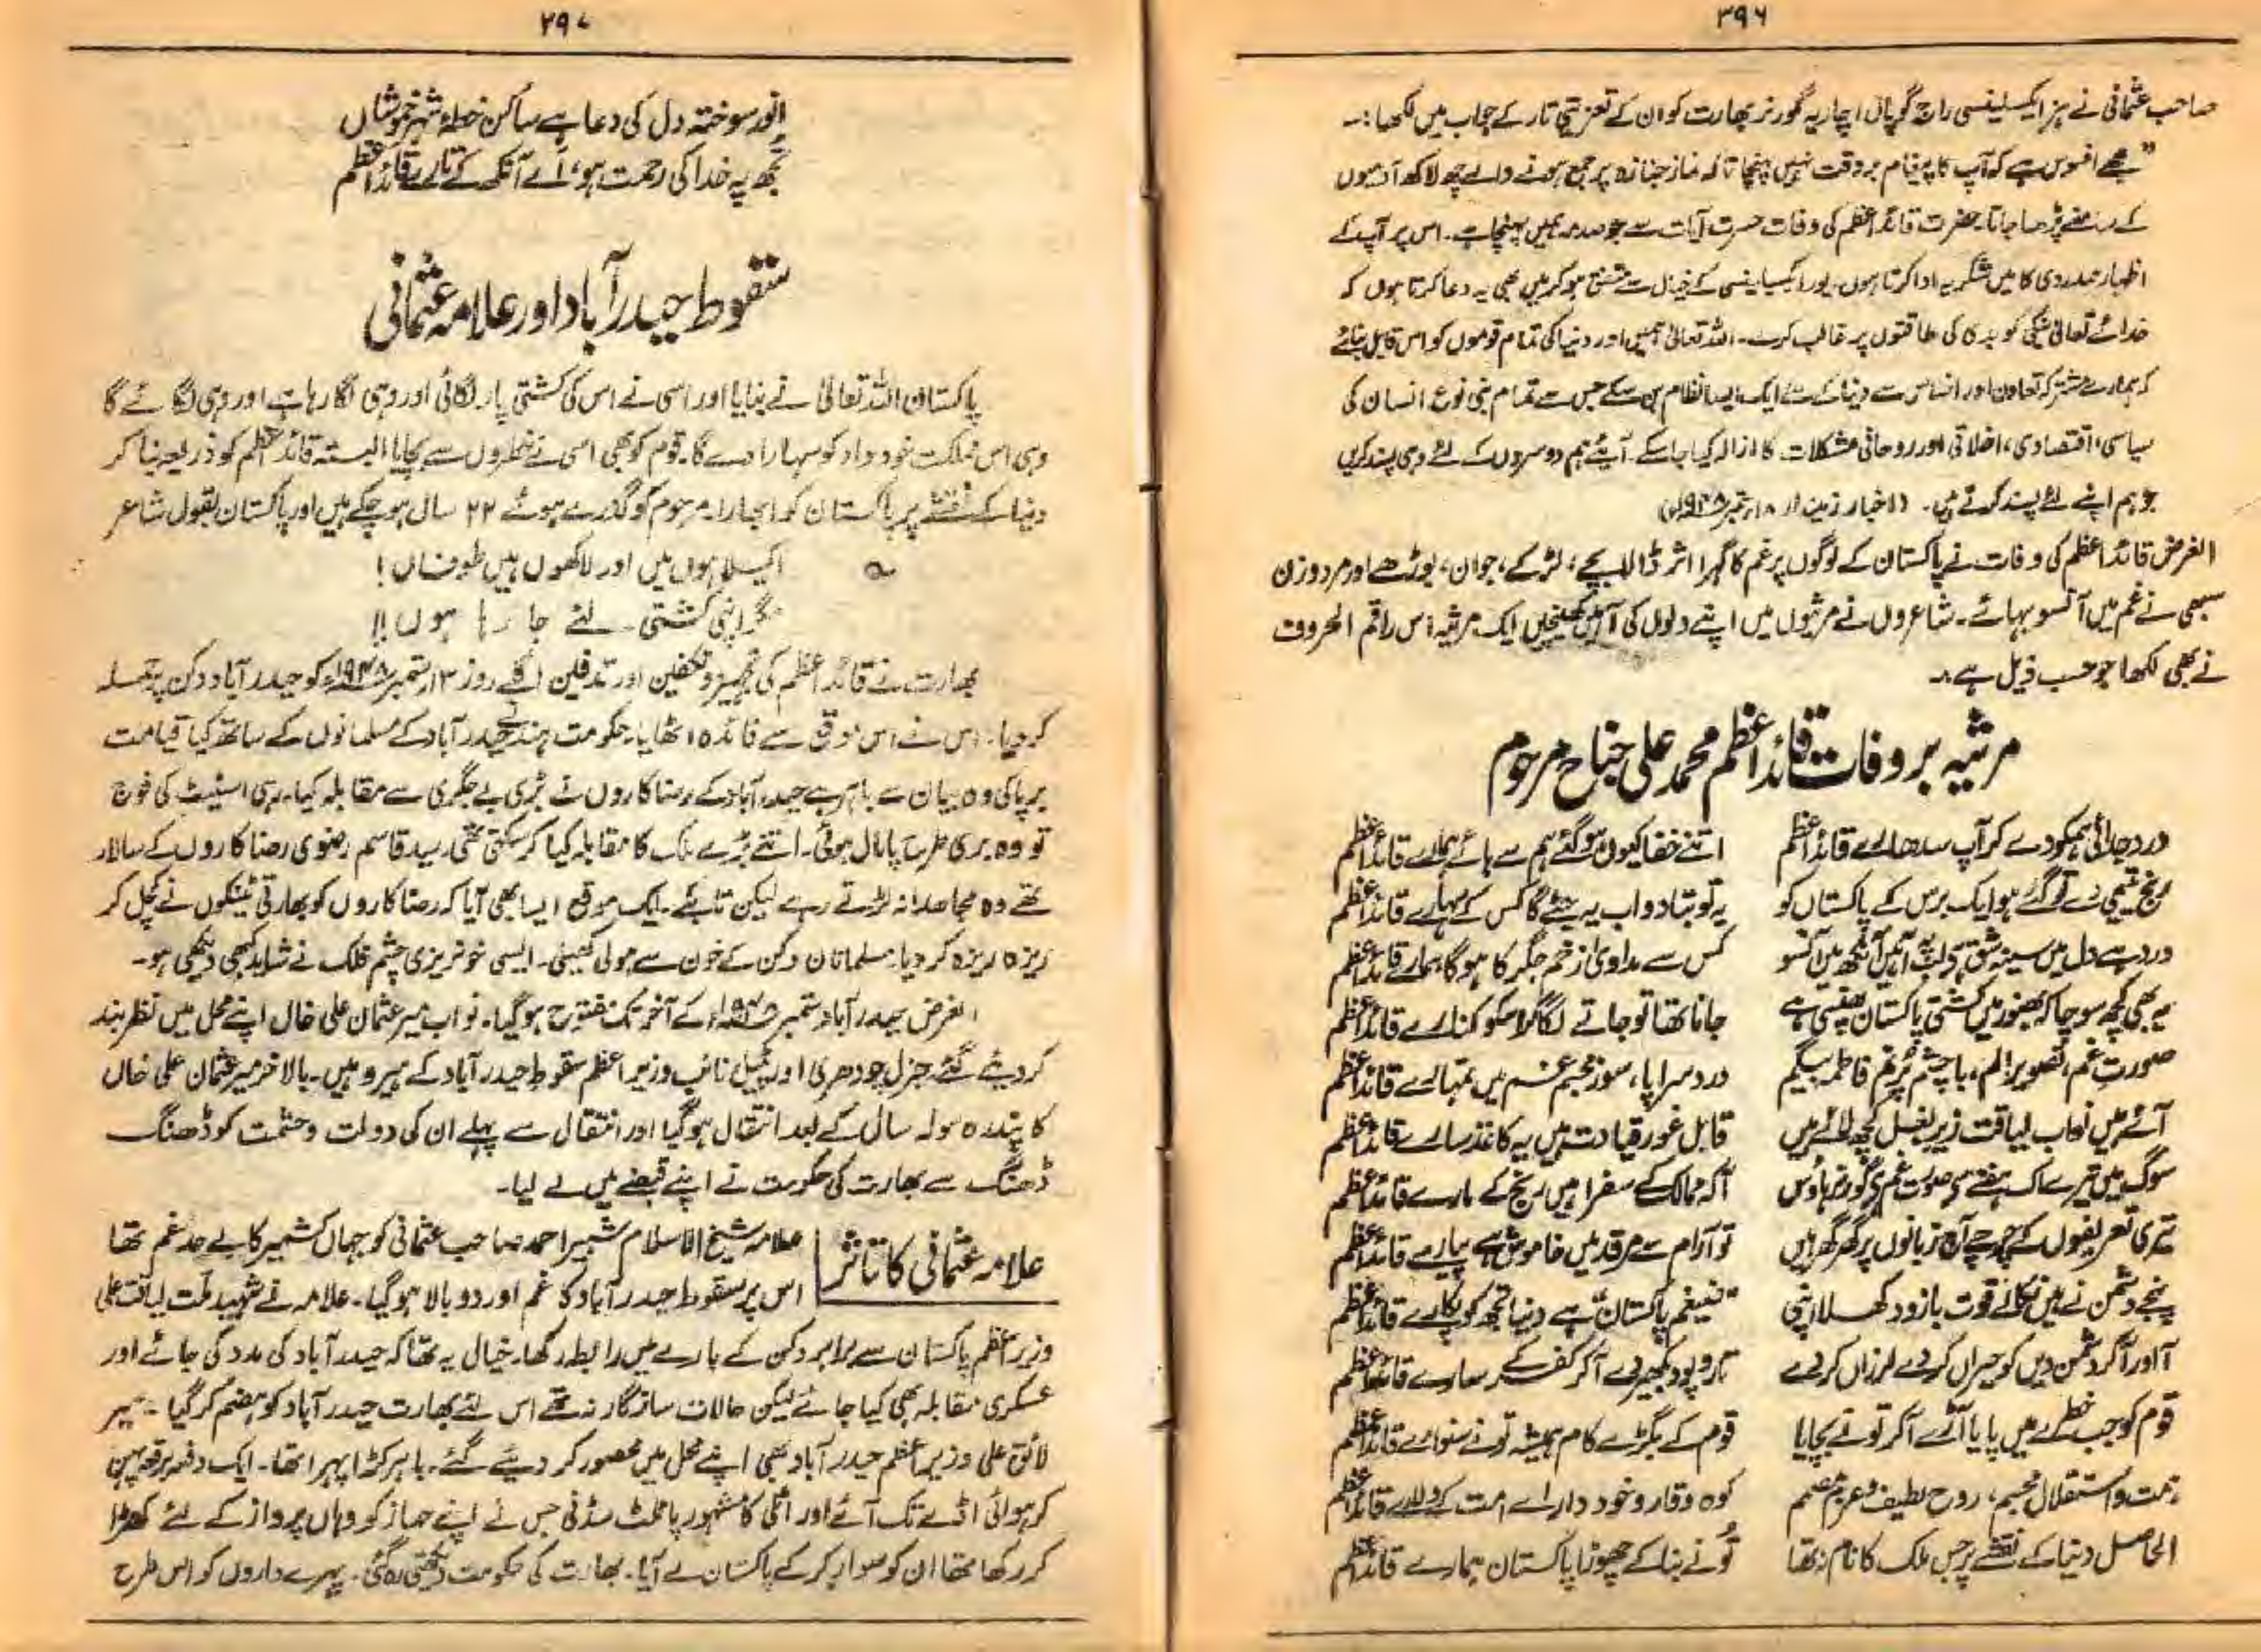 ۳۹۶
صاحب عثمانی نے ہز ایکسیلینسی راج گوپال اچاریہ گورنر بھارت کو ان کے تعزیتی تار کے جواب میں لکھا:۔
"مجھے افسوس ہے کہ آپ کا پیغام بروقت نہیں پہنچا تاکہ نماز جنازہ پر جمع ہونے والے چھ لاکھ آدمیوں
کے سامنے پڑھا جاتا۔ حضرت قائداعظم کی وفات حسرت آیات سے جو صدمہ ہمیں پہنچا ہے۔ اس پر آپ کے
اظہار ہمدردی کا میں شکریہ ادا کرتا ہوں۔ یور ایکسیلینسی کے خیال سے متفق ہو کر میں بھی یہ دعا کرتا ہوں کہ
خدائے تعالیٰ نیکی کو بدی کی طاقتوں پر غالب کرے۔ اللہ تعالیٰ ہمیں اور دنیا کی تمام قوموں کو اس قابل بنائے
کہ ہمارے مشترکہ تعاون اور احساس سے دنیا کے لئے ایک ایسا نظام بن سکے جس سے تمام بنی نوع انسان کی
سیاسی، اقتصادی، اخلاقی اور روحانی مشکلات کا ازالہ کیا جا سکے۔ آیئے ہم دوسروں کے لئے وہی پسند کریں
جو ہم اپنے لئے پسند کرتے ہیں۔ (اخبار زمیندار ۱۸ ستمبر ۱۹۴۸ء)
الغرض قائداعظم کی وفات نے پاکستان کے لوگوں پر غم کا گہرا اثر ڈالا بچے، لڑکے، جوان، بوڑھے اور مرد و زن
سبھی نے غم میں آنسو بہائے۔ شاعروں نے مرثیوں میں اپنے دلوں کی آہیں کھینچیں ایک مرثیہ اس راقم الحروف
نے بھی لکھا جو حسب ذیل ہے:۔
مرثیہ بروفات قائداعظم محمد علی جناح مرحوم
درد جدائی ہمکو دے کر آپ سدھارے قائداعظم اتنے خفا کیوں ہو گئے ہم سے ہائے ہمارے قائداعظم
رنج یتیمی دے تو گئے ہو ایک برس کے پاکستاں کو یہ تو بتا دو اب یہ جئے گا کس کے سہارے قائداعظم
درد ہے دل میں سینہ شق ہے لب پہ آہیں آنکھ میں آنسو کس سے مداویٰ زخم جگر کا ہوگا ہمارے قائداعظم
یہ بھی کچھ سوچا کہ بھنور میں کشتی پاکستان پھنسی ہے جانا تھا تو جاتے لگا کر اسکو کنارے قائداعظم
صورت غم، تصویر الم، با چشم پرنم فاطمہ بیگم درد سراپا، سوز مجسم غم میں تمہارے قائداعظم
آئے ہیں نواب لیاقت زیر بغل کچھ لائے ہیں قابل غور قیادت ہیں یہ کاغذ سارے قائداعظم
سوگ میں تیرے اک ہفتے سے صورت غم ہے گورنر ہاؤس آکہ ممالک کے سفرا ہیں رنج کے مارے قائداعظم
تیری تعریفوں کے چرچے آج زبانوں پر گھر گھر ہیں تو آرام سے مرقد میں خاموش ہے پیارے قائداعظم
پنجے دشمن نے ہیں نکالے قوت بازو دکھلا اپنی "ضیغم پاکستاں" ہے دنیا تجھ کو پکارے قائداعظم
آ اور آ کر دشمن دیں کو حیراں کر دے لرزاں کر دے تار و پود بکھیر دے آ کر کفر کے سارے قائداعظم
قوم کو جب خطرے میں پایا آڑے آ کر تو نے بچایا قوم کے بگڑے کام ہمیشہ تو نے سنوارے قائداعظم
ہمت و استقلال مجسم، روح لطیف و عزم مصمم کوہ وقار و خود دار اے امت کے دلارے قائداعظم
الحاصل دنیا کے نقشے پر جس ملک کا نام نہ تھا تو نے بنا کے چھوڑا پاکستان ہمارے قائداعظم
۳۹۷
انور سوختہ دل کی دعا ہے ساکن خطۂ شہر خموشاں
تجھ پہ خدا کی رحمت ہو، اے آنکھ کے تارے قائداعظم
سقوط حیدرآباد اور علامہ عثمانی
پاکستان اللہ تعالیٰ نے بنایا اور اسی نے اس کی کشتی پار لگائی اور وہی لگا رہا ہے اور وہی لگائے گا
وہی اس مملکت خودداد کو سہارا دے گا۔ قوم کو بھی اسی نے خطروں سے بچایا البتہ قائداعظم کو ذریعہ بنا کر
دنیا کے نقشے پر پاکستان کو ابھارا۔ مرحوم کو گذرے ہوئے ۲۲ سال ہو چکے ہیں اور پاکستان بقول شاعر
؎ اکیلا ہوں میں اور لاکھوں ہیں طوفاں!
مگر اپنی کشتی لئے جا رہا ہوں!!
بھارت نے قائداعظم کی تجہیز و تکفین اور تدفین اگلے روز ۱۳ ستمبر ۱۹۴۸ء کو حیدرآباد دکن پر حملہ
کر دیا۔ اس نے اس موقع سے فائدہ اٹھایا۔ حکومت ہند نے حیدرآباد کے مسلمانوں کے ساتھ کیا قیامت
برپا کی وہ بیان سے باہر ہے حیدرآباد کے رضا کاروں نے بڑی بے جگری سے مقابلہ کیا۔ رہی اسٹیٹ کی فوج
تو وہ بری طرح پامال ہوئی۔ اتنے بڑے ملک کا مقابلہ کیا کر سکتی تھی۔ سید قاسم رضوی رضا کاروں کے سالار
تھے وہ مجاہدانہ لڑتے رہے لیکن تابکے۔ ایک موقع ایسا بھی آیا کہ رضا کاروں کو بھارتی ٹینکوں نے کچل کر
ریزہ ریزہ کر دیا۔ مسلمانان دکن کے خون سے ہولی کھیلی۔ ایسی خونریزی چشم فلک نے شاید کبھی دیکھی ہو۔
الغرض حیدرآباد ستمبر ۱۹۴۸ء کے آخر تک مفتوح ہو گیا۔ نواب میر عثمان علی خاں اپنے محل میں نظر بند
کر دیئے گئے۔ جنرل چودھری اور پٹیل نائب وزیر اعظم سقوط حیدرآباد کے ہیرو ہیں۔ بالآخر میر عثمان علی خاں
کا پندرہ سولہ سال کے بعد انتقال ہو گیا اور انتقال سے پہلے ان کی دولت و حشمت کو ڈھنگ
ڈھنگ سے بھارت کی حکومت نے اپنے قبضے میں لے لیا۔
علامہ عثمانی کا تاثر
علامہ شیخ الاسلام شبیر احمد صاحب عثمانی کو جہاں کشمیر کا بے حد غم تھا
اس پر سقوط حیدرآباد کا غم اور دوبالا ہو گیا۔ علامہ نے شہید ملت لیاقت علی
وزیر اعظم پاکستان سے برابر دکن کے بارے میں رابطہ رکھا۔ خیال یہ تھا کہ حیدرآباد کی مدد کی جائے اور
عسکری مقابلہ بھی کیا جائے لیکن حالات سازگار نہ تھے اس لئے بھارت حیدرآباد کو ہضم کر گیا۔ میر
لائق علی وزیر اعظم حیدرآباد بھی اپنے محل میں محصور کر دیئے گئے۔ باہر کڑا پہرا تھا۔ ایک دفعہ برقعہ پہن
کر ہوائی اڈے تک آئے اور اٹلی کا مشہور پائلٹ سڈنی جس نے اپنے جہاز کو وہاں پرواز کے لئے کھڑا
کر رکھا تھا ان کو سوار کر کے پاکستان لے آیا۔ بھارت کی حکومت دیکھتی رہ گئی۔ پہرے داروں کو اس طرح